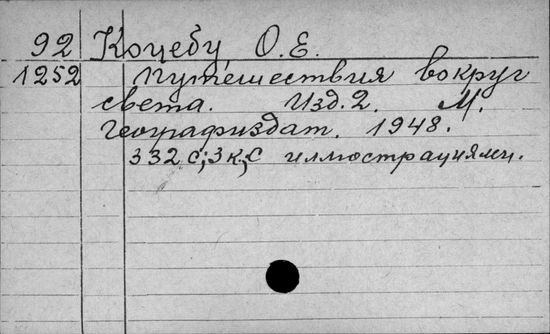 92 Коцебу О.Е.
1252 Путешествия вокруг
света. Изд.2. М.
Географиздат. 1948.
332 с; 3 к, с иллюстрациями.